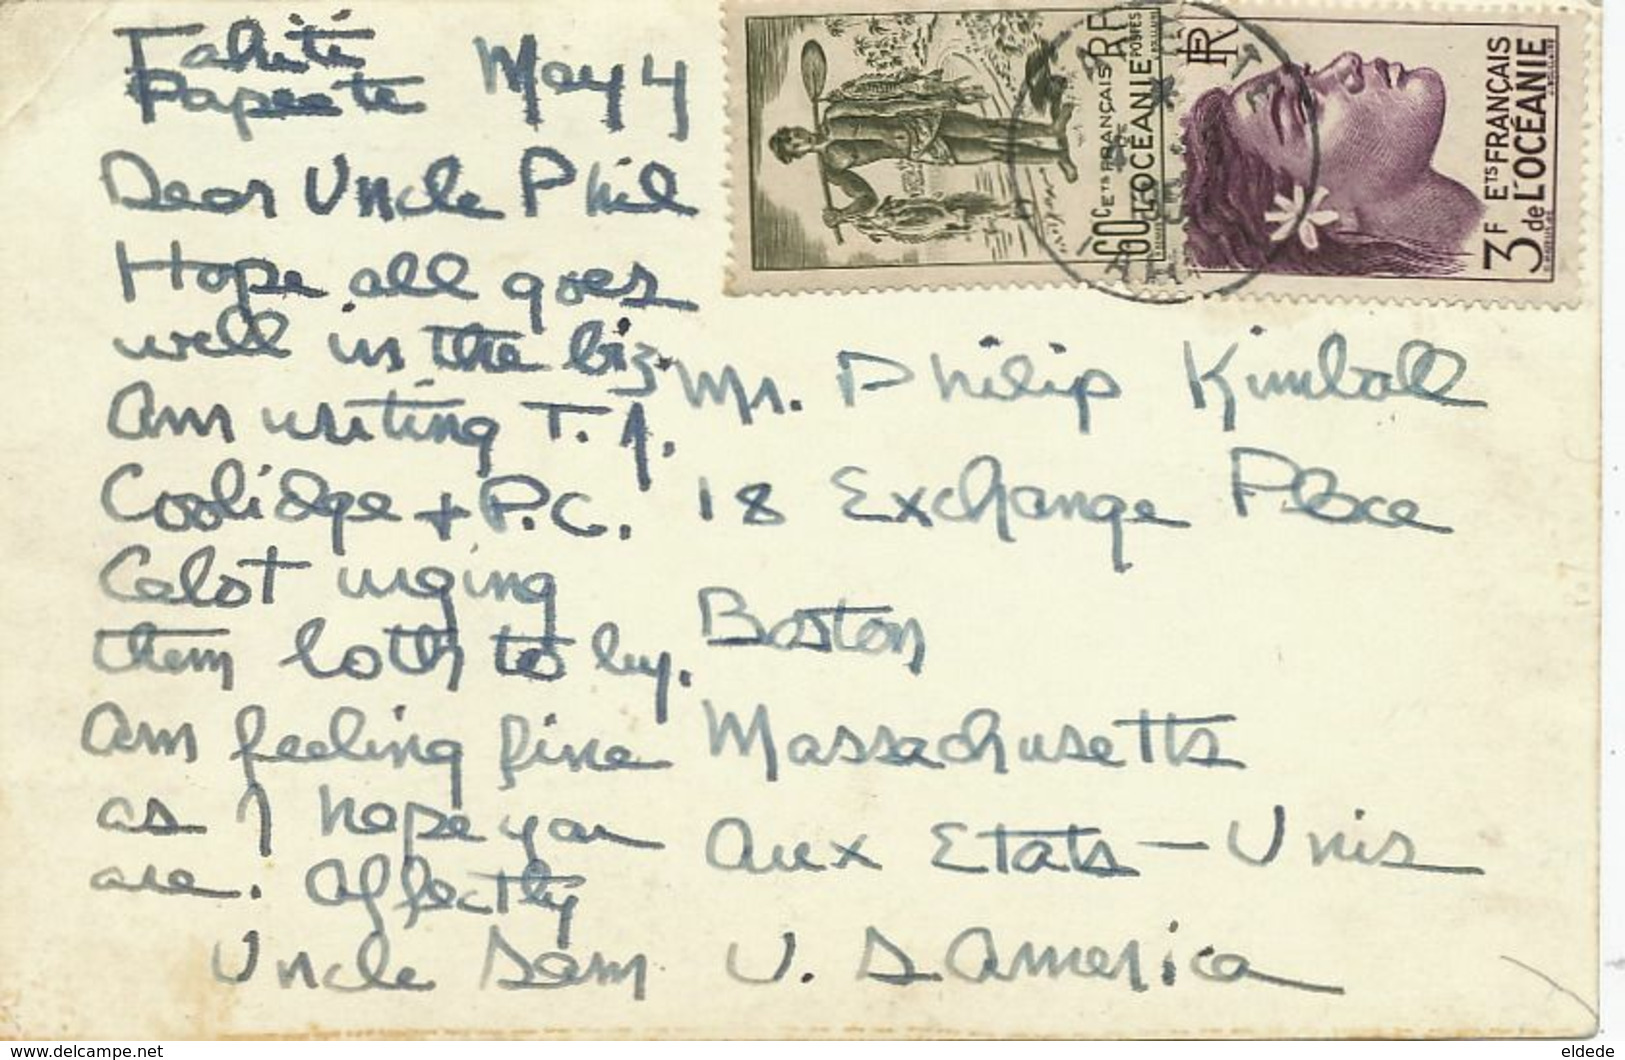 Tahiti
Papeete May 4
Dear Uncle Phil
Hope all goes
well in the biz.
Am writing T. J.
Coolidge + P. C.
Cabot urging
them both to buy.
Am feeling fine
as I hope you
are. Affectly
Uncle Sam
RF
POSTES
60 CTS
ETS FRANÇAIS
DE
L'OCÉANIE
RF
3F
ETS FRANÇAIS
de L'OCÉANIE
Mr. Philip Kimball
18 Exchange Place
Boston
Massachusetts
Aux Etats-Unis
U. S America
www.delcampe.net
eldede